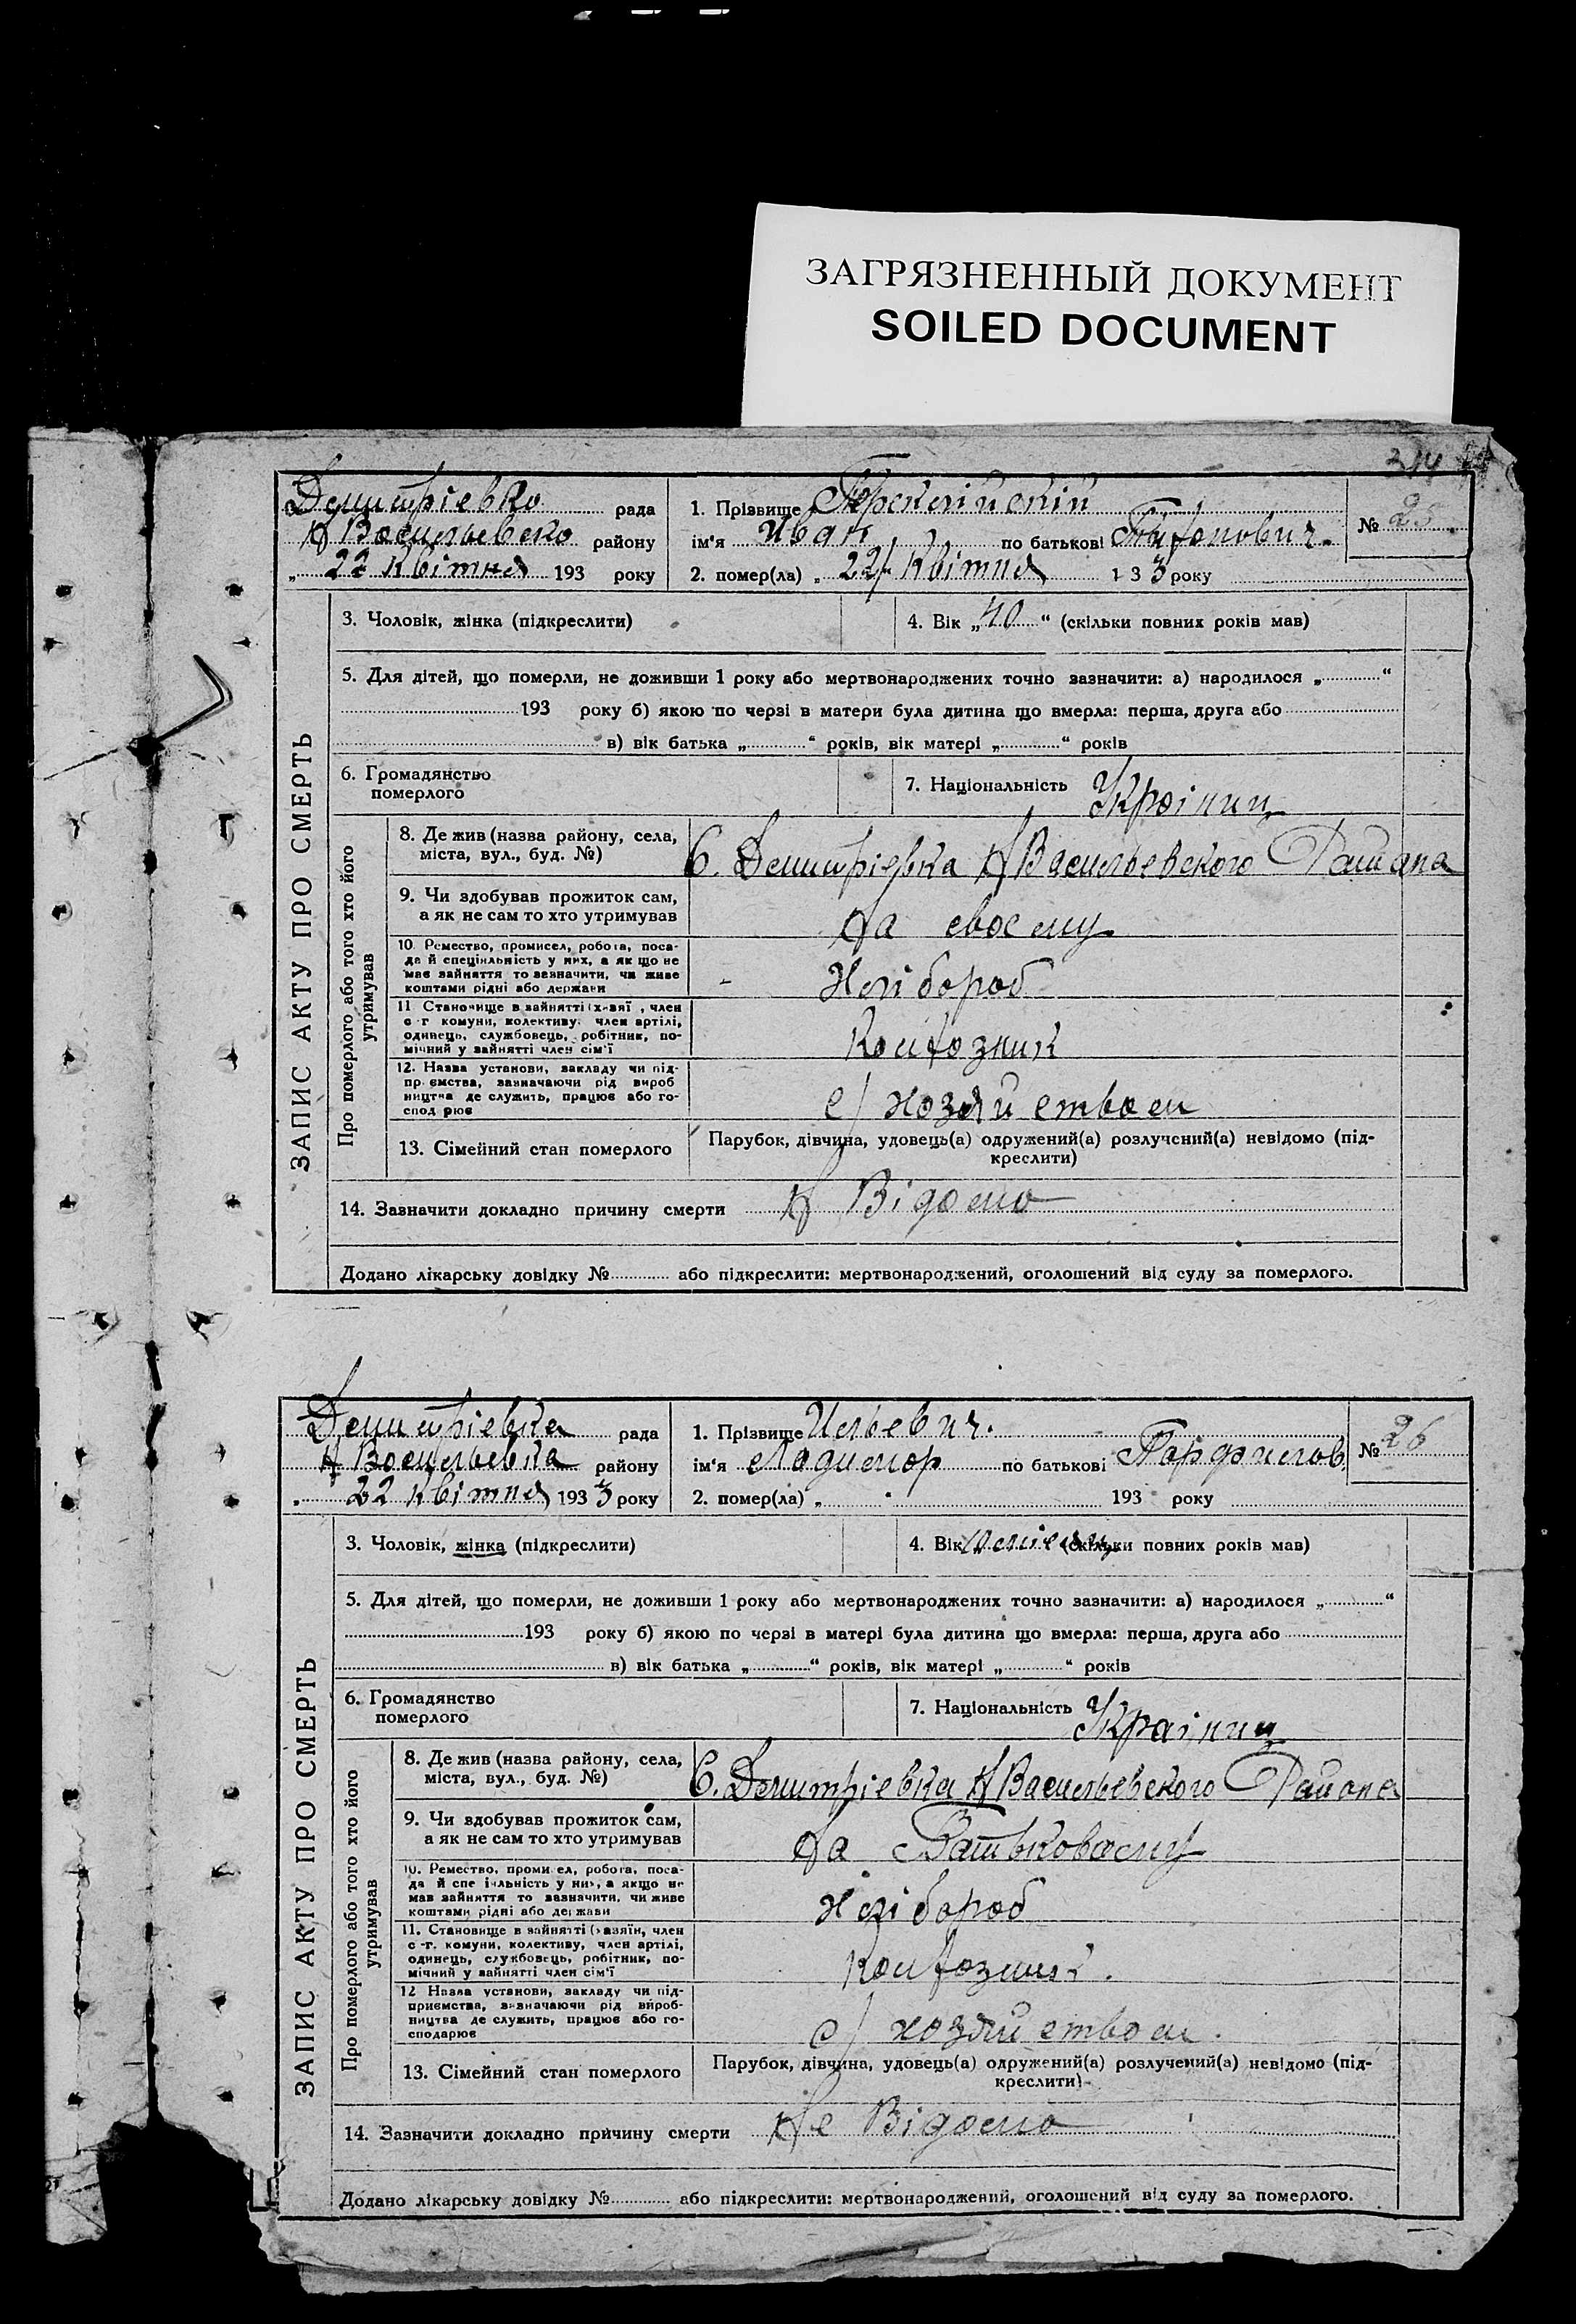 ЗАГРЯЗНЕННЫЙ ДОКУМЕНТ
SOILED DOCUMENT
ЗАПИС АКТУ ПРО СМЕРТЬ
рада
району
22 Квітня 193 року
1. Прізвище
№ 25
ім'я Иван по батькові
2. помер(ла) „ 22/ Квітня 1 3 3 року
3. Чоловік, жінка (підкреслити)
4. Вік „40“ (скільки повних років мав)
5. Для дітей, що померли, не доживши 1 року або мертвонароджених точно зазначити: а) народилося „ “
193 року б) якою по черзі в матери була дитина що вмерла: перша, друга або
в) вік батька „ “ років, вік матері „ “ років
6. Громадянство
померлого
7. Національність Украіниц
Про померлого або того хто його
утримував
8. Де жив (назва району, села,
міста, вул., буд. №)
С. Демитріевка Н Васильевского Района
9. Чи здобував прожиток сам,
а як не сам то хто утримував
На своему
10. Ремество, промисел, робота, поса-
да й спеціяльність у них, а як що не
має зайняття то зазначити, чи живе
коштами рідні або держави
Хлібороб
11 Становище в зайнятті (х-вяї , член
с-г комуни, колективу, член артілі,
одинець, службовець, робітник, по-
мічний у зайнятті член сім'ї
Колхозник
12. Назва установи, закладу чи під-
пр.ємства, зазначаючи рід вироб
ництва де служить, працює або го-
спод рює
с/ хозяйством
13. Сімейний стан померлого
Парубок, дівчина, удовець(а) одружений(а) розлучений(а) невідомо (під-
креслити)
14. Зазначити докладно причину смерти Н Відомо
Додано лікарську довідку № або підкреслити: мертвонароджений, оголошений від суду за померлого.
ЗАПИС АКТУ ПРО СМЕРТЬ
Демитріевка рада
Н Васильевка району
22 Квітня 193 3 року
1. Прізвище Ильевич.
№ 26
ім'я по батькові
2. помер(ла) „ 193 року
3. Чоловік, жінка (підкреслити)
4. Вік (скільки повних років мав)
5. Для дітей, що померли, не доживши 1 року або мертвонароджених точно зазначити: а) народилося „ “
193 року б) якою по черзі в матері була дитина що вмерла: перша, друга або
в) вік батька „ “ років, вік матері „ “ років
6. Громадянство
померлого
7. Національність Украіниц
Про померлого або того хто його
утримував
8. Де жив (назва району, села,
міста, вул., буд. №)
С. Демитріевка Н Васильевского Района
9. Чи здобував прожиток сам,
а як не сам то хто утримував
На Батьковому
10. Ремество, проми ел, робота, поса-
да й спе іяльність у них, а якщо не
мав зайняття то зазначити, чи живе
коштами рідні або держави
Хлібороб
11. Становище в зайнятті (хазяїн, член
с-г. комуни, колективу, член артілі,
одинець, службовець, робітник, по-
мічний у зайнятті член сім'ї
Колхозник.
12 Назва установи, закладу чи під-
приємства, зазначаючи рід вироб-
ництва де служить, працює або го-
сподарює
с/ хозяйством.
13. Сімейний стан померлого
Парубок, дівчина, удовець(а) одружений(а) розлучений(а) невідомо (під-
креслити)
14. Зазначити докладно причину смерти Не Відомо
Додано лікарську довідку № або підкреслити: мертвонароджений, оголошений від суду за померлого.